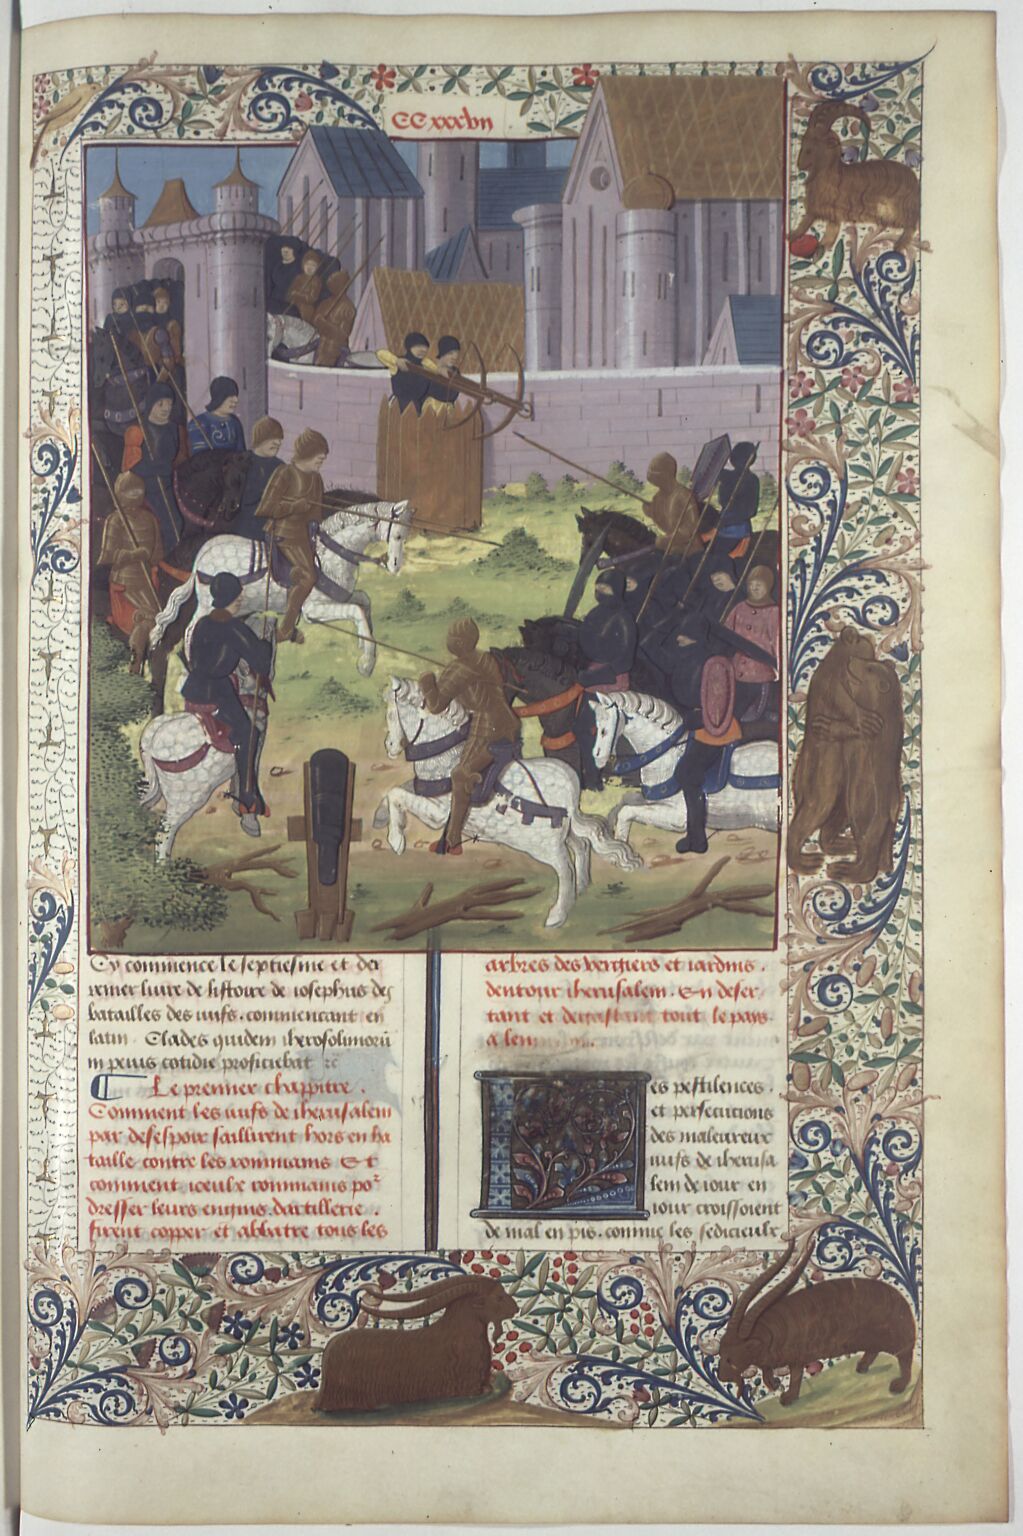 CCxxxvii
Cy commence le septiesme et der
renier livre de listoire de iosephus des
batailles des iuifs. commencant en
latin Clades quidem iherosolimorū
in peius cotidie proficiebat
Le premier chappitre.
Comment les iuifs de iherusalem
par desespoir saillirent hors en ba
taille contre les rommains Et
comment iceulx rommains po²
dresser leurs engins dartillerie.
firent copper et abbatre tous les
arbres des vergiers et iardins.
dentour iherusalem. En deser
tant et degastant tout le pays
a lenuiron.
es pestilences.
et persecutions
des maleureux
iuifs de iherusa
lem de iour en
iour croissoient
de mal en pis. comme les sedicieulx